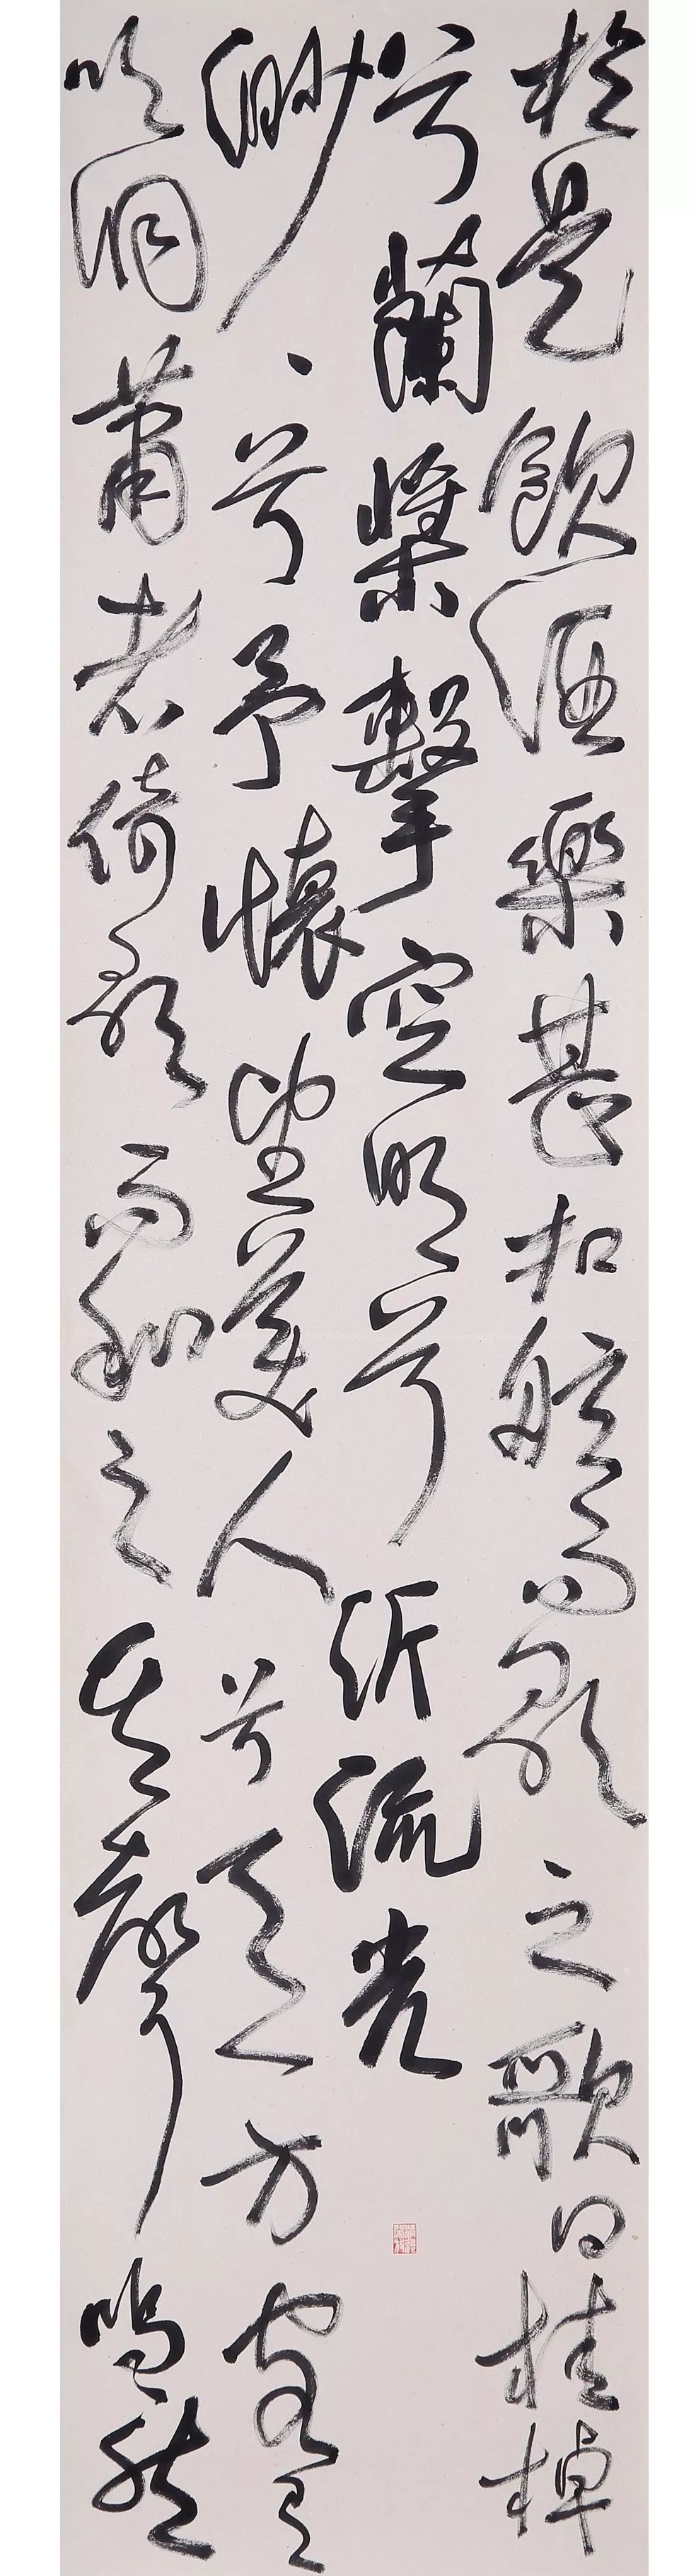 於是飲酒樂甚扣舷而歌之歌曰桂棹
兮蘭槳擊空明兮泝流光
渺〻兮予懷望美人兮天一方客有
吹洞蕭者倚歌而和之其聲嗚然